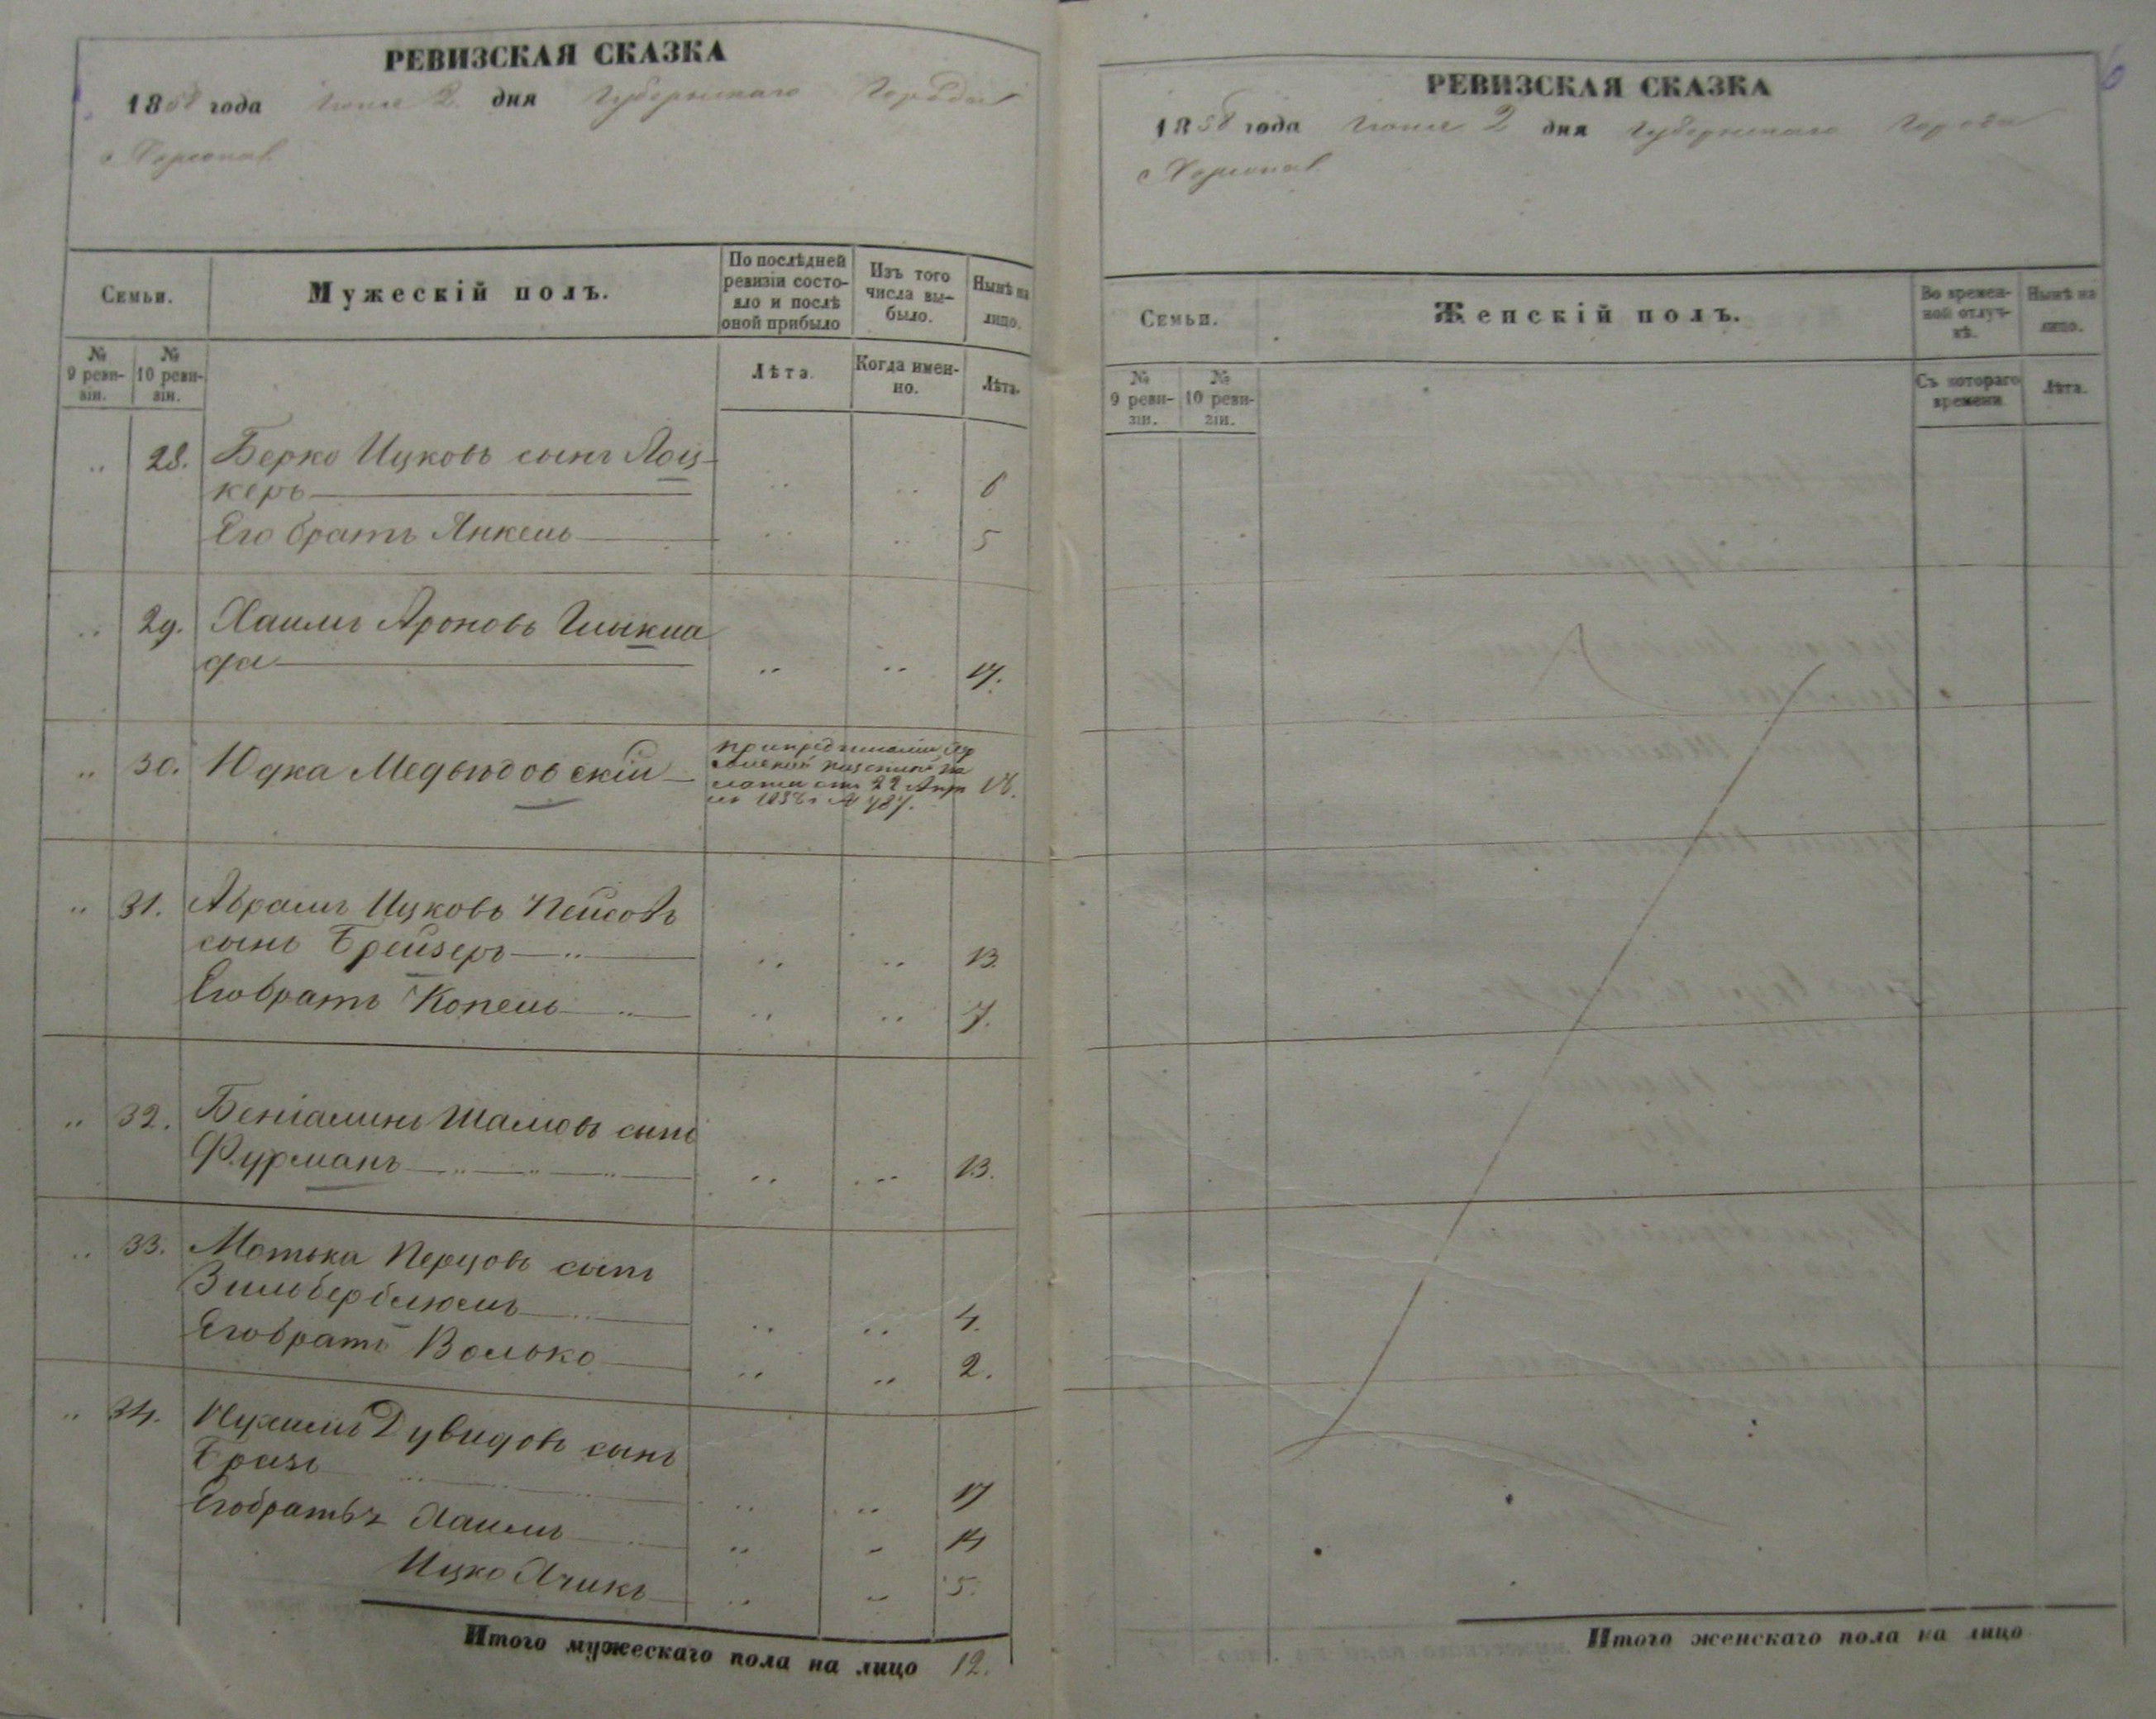 РЕВИЗСКАЯ СКАЗКА
1858 года Іюня 2 дня Губернскаго Города
Херсона
Семьи.
Мужескій полъ.
По послѣдней ревизіи состо-
яло и послѣ оной прибыло
Изъ того числа вы-
было.
Нынѣ на лицо.
№ 9 реви-
зіи.
№ 10 реви-
зіи.
Лѣта.
Когда имен-
но.
Лѣта.
28. Берко Ицковъ сынъ Лоц-
керъ 6
Его братъ Янкель 5
29. Хаимъ Ароновъ
17.
30. Юдка Медьвдовскій 18.
31. Абрамъ Ицковъ Пейсовъ
сынъ Брейзеръ 13
Его братъ Копель 7.
32. Беніаминъ Шамовъ сынъ
Фурманъ 13.
33. Мотька Перцовъ сынъ
Зильберблюмъ 4.
Его братъ Волько 2.
34. Нухимъ Дувидовъ сынъ
Бразъ 17
Его братья Хаимъ 14
Ицко Ячикъ 5.
Итого мужескаго пола на лицо 12.
РЕВИЗСКАЯ СКАЗКА
1858 года Іюня 2 дня Губернскаго Города
Херсона
Семьи.
Женскій полъ.
Во времен-
ной отлуч-
кѣ.
Нынѣ на лицо.
№ 9 реви-
зіи.
№ 10 реви-
зіи.
Съ котораго времени
Лѣта.
Итого женскаго пола на лицо